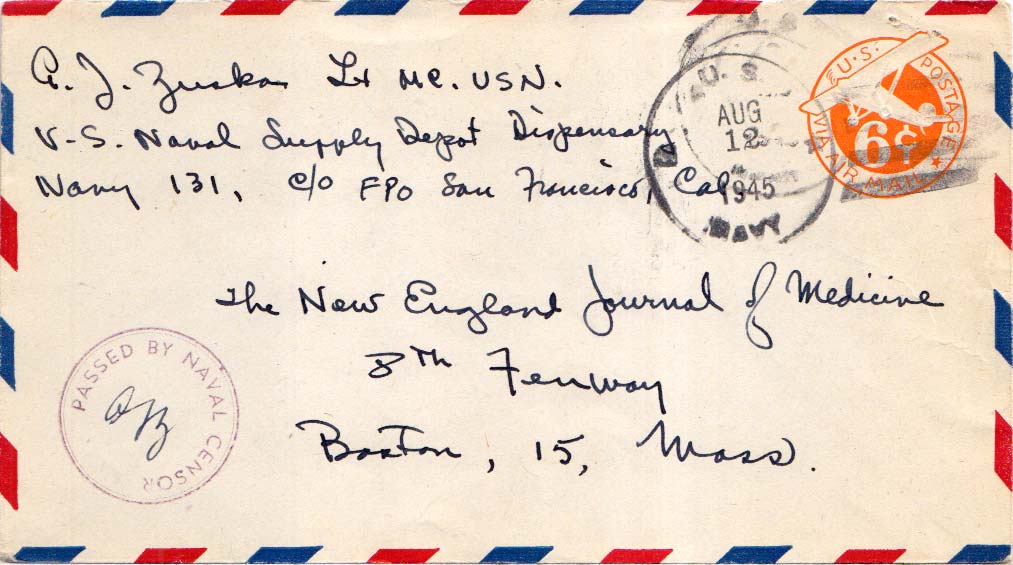 A. J. Zuska Lt MC. USN.
U.S. Naval Supply Depot Dispensary
Navy 131, c/o FPO San Francisco, Cal.
U.S. POSTAGE
VIA AIR MAIL
6¢
U.S.
AUG
12
1945
NAVY
The New England Journal of Medicine
8th Fenway
Boston, 15, Mass.
PASSED BY NAVAL CENSOR
AJZ